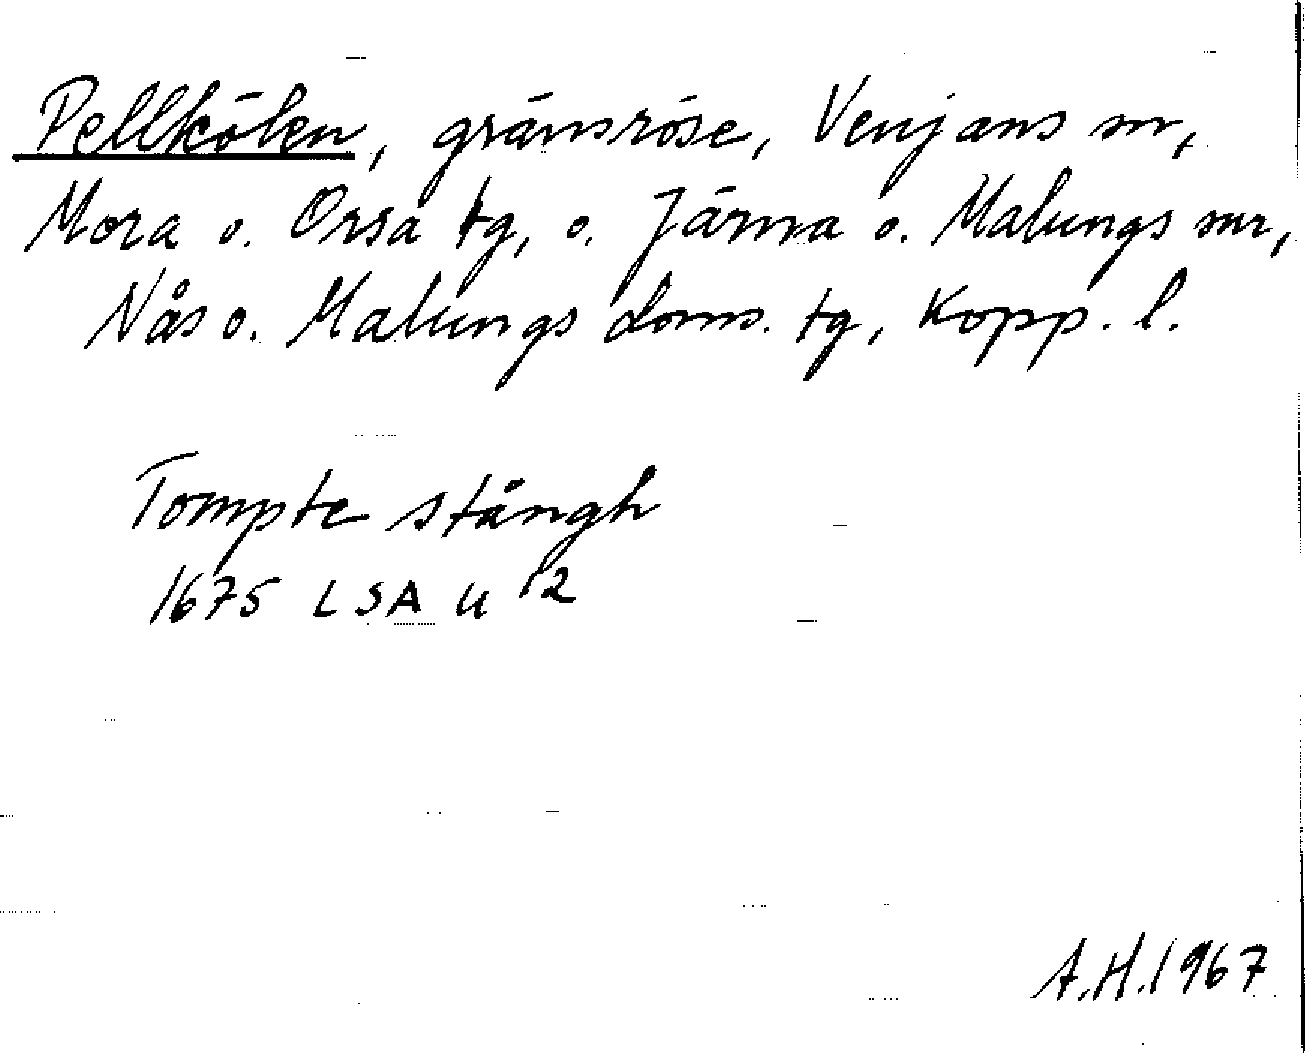 Pellkölen, gränsröse, Venjans sn,
Mora o. Orsa tg, o. Järna o. Malungs snr,
Nås o. Malungs doms. tg, Kopp. l.
Tompte stångh
1675 LSA U 12
A.H. 1967